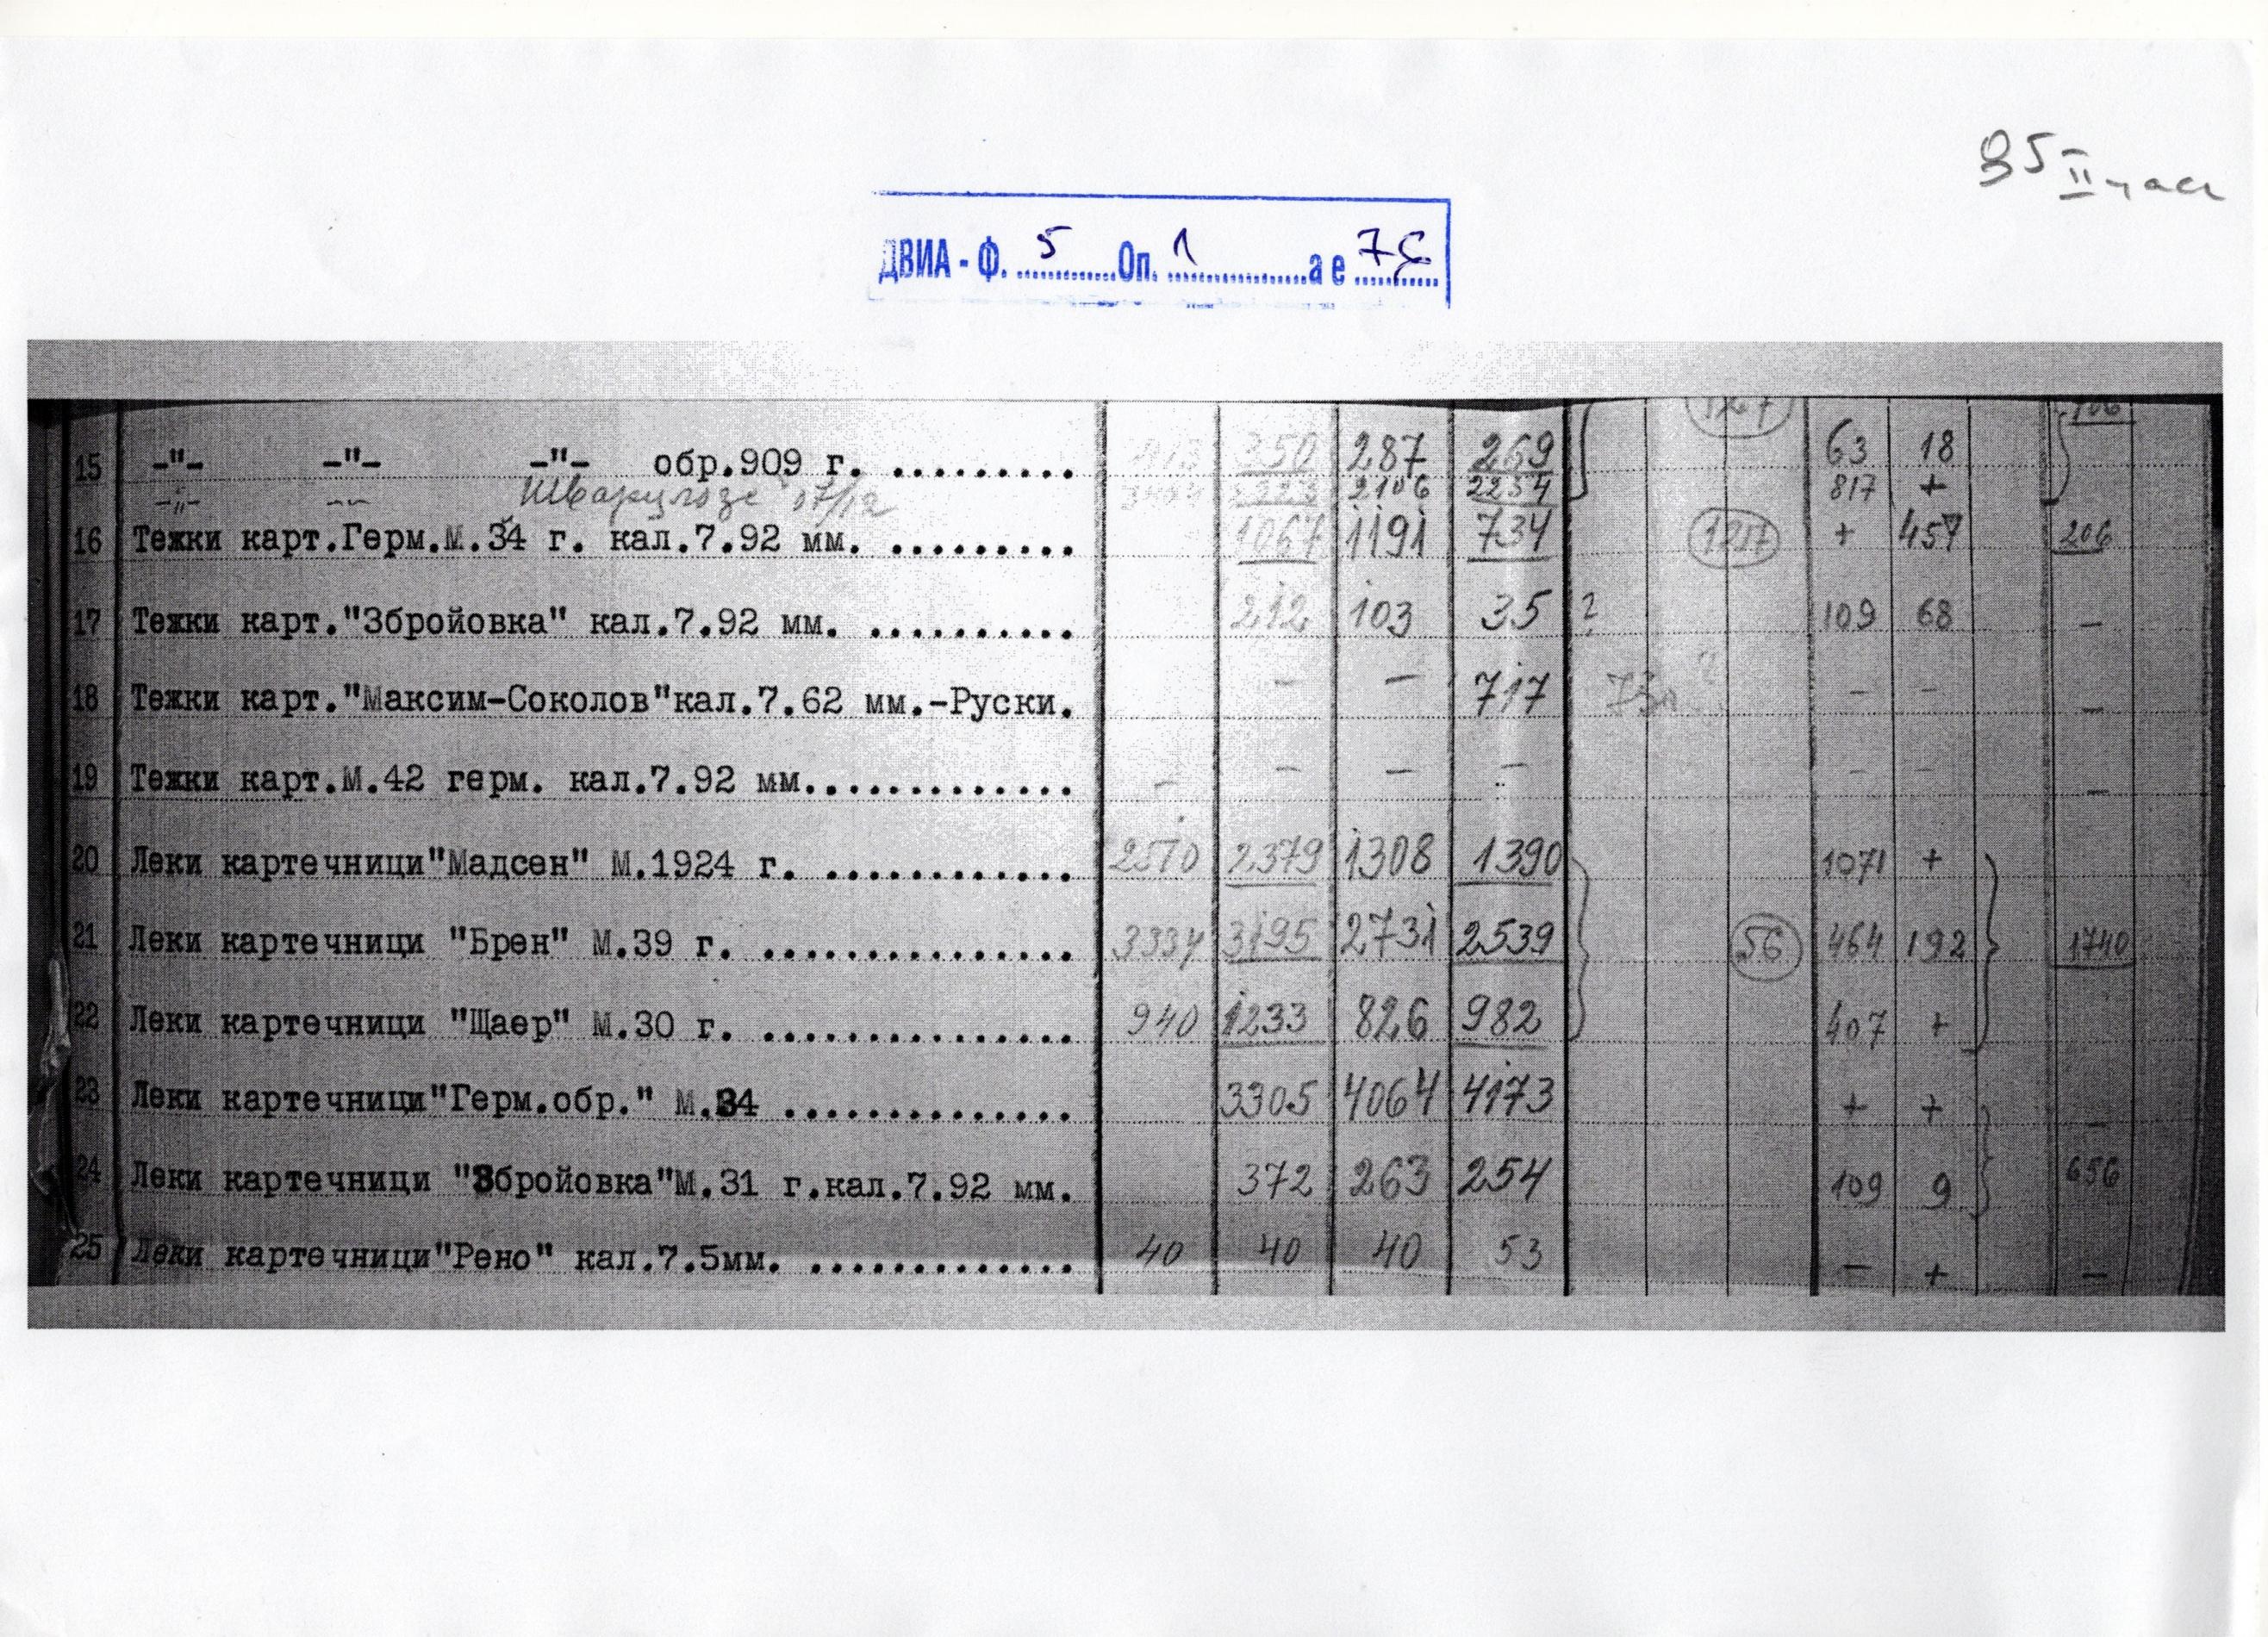 35 II част
ДВИА - Ф. 5 Оп. 1 а е 7С
15 -"- -"- -"- обр.909 г. .......... 350 287 269 63 18
-"- -"- Шварцлозе 07/12 2106 2254 817 +
16 Тежки карт.Герм.М.34 г. кал.7.92 мм. .......... 1067 1191 734 1217 + 457 206
17 Тежки карт."Збройовка" кал.7.92 мм. .......... 212 103 35 ? 109 68 –
18 Тежки карт."Максим-Соколов"кал.7.62 мм.-Руски. – – 717 – – –
19 Тежки карт.М.42 герм. кал.7.92 мм.............. – – – – – – –
20 Леки картечници"Мадсен" М.1924 г. ............. 2570 2379 1308 1390 1071 +
21 Леки картечници "Брен" М.39 г. ............... 3334 3195 2731 2539 56 464 192 1740
22 Леки картечници "Щаер" М.30 г. ............... 940 1233 826 982 407 +
23 Леки картечници"Герм.обр." М.34 .............. 3305 4064 4173 + + –
24 Леки картечници "Збройовка"М.31 г.кал.7.92 мм. 372 263 254 109 9 656
25 Леки картечници"Рено" кал.7.5мм. ............. 40 40 40 53 – + –